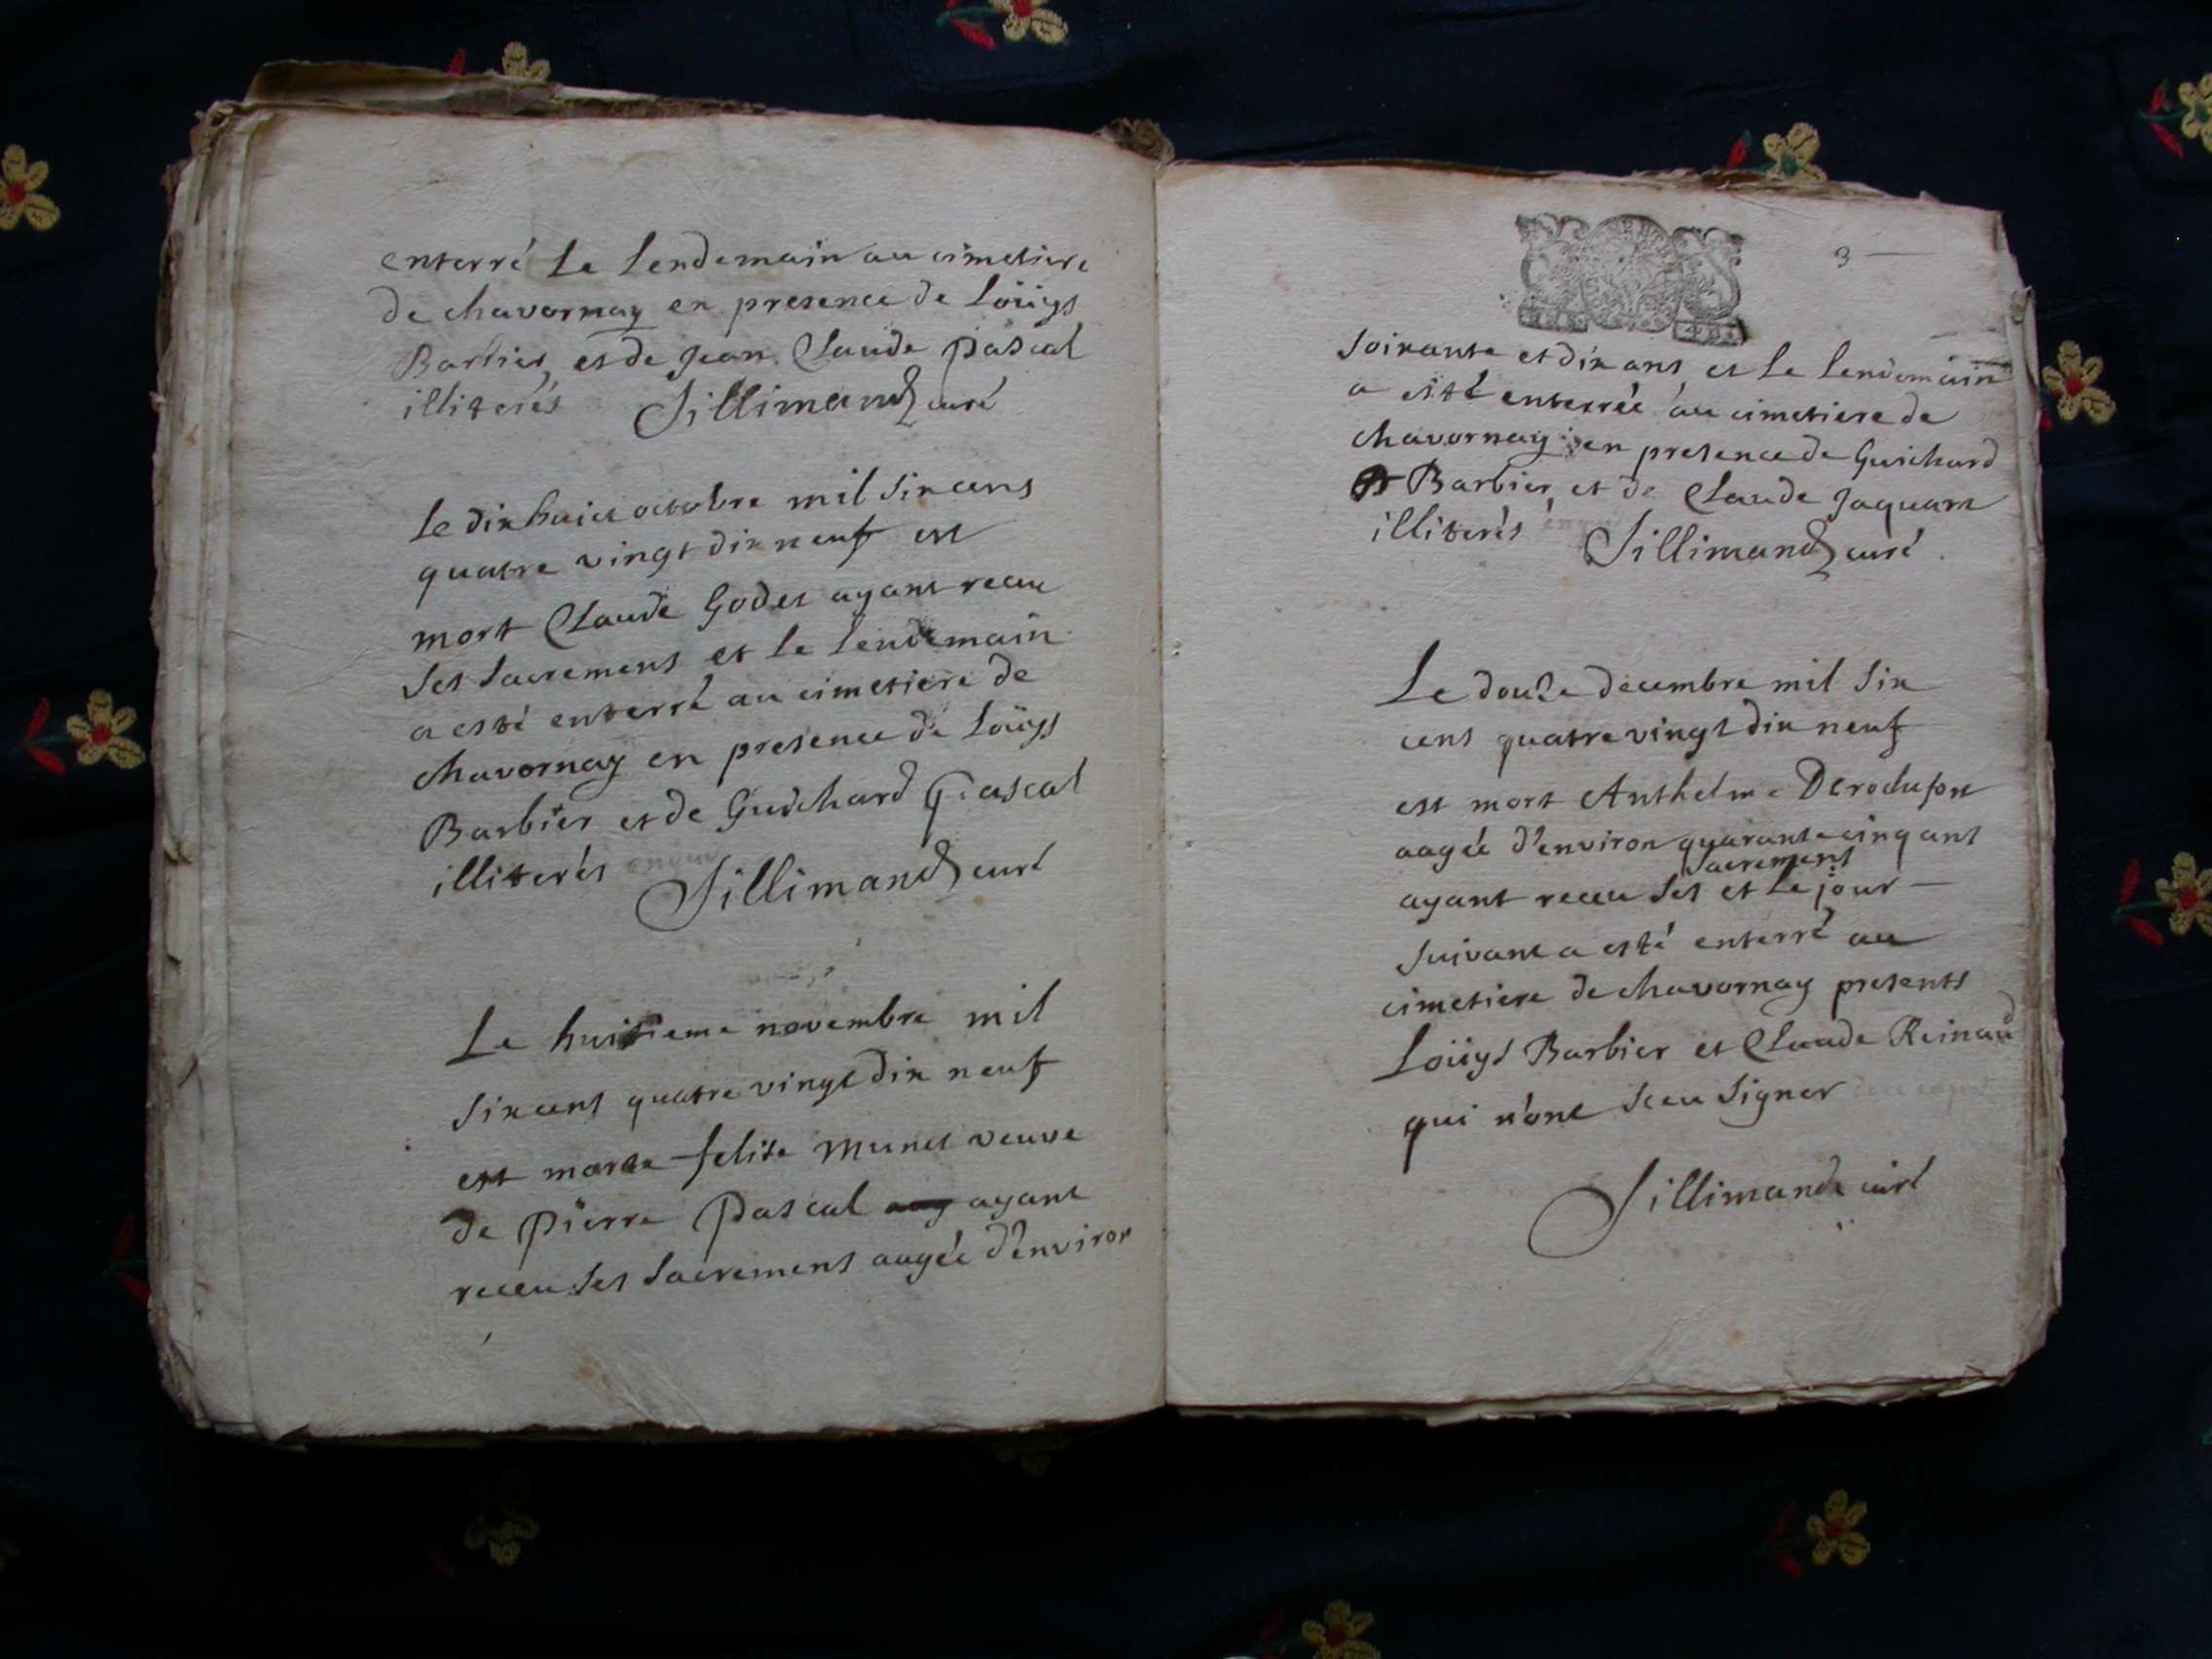 enterré le lendemain au cimetiere
de chavornay en presence de Loüys
Barbier, et de Jean Claude Pascal
illiterés Sillimand curé
Le dix huict octobre mil six cens
quatre vingt dix neuf est
mort Claude Godet ayant receu
ses sacremens et le lendemain
a esté enterré au cimetiere de
chavornay en presence de Loüys
Barbier et de Guichard Pascal
illiterés Sillimand curé
Le huitieme novembre mil
six cent quatre vingt dix neuf
est morte felise Munet veuve
de Pierre Pascal aag ayant
receu ses sacremens aagée d'environ
3
soixante et dix ans et le lendemain
a esté enterrée au cimetiere de
chavornay en presence de Guichard
Barbier, et de Claude Jaquant
illiterés Sillimand curé
Le douze decembre mil six
cens quatre vingt dix neuf
est mort Anthelme
aagée d'environ quarante cinq ans
sacremens
ayant receu ses et le jour
suivant a esté enterré au
cimetiere de chavornay presents
Loüys Barbier et Claude Reinaud
qui n'ont sceu signer
Sillimand curé